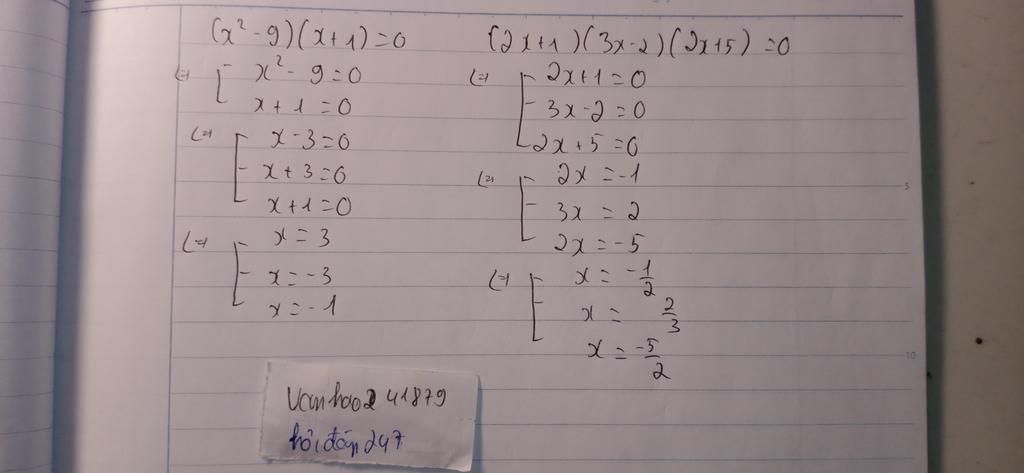 (x² - 9)(x + 1) = 0
(=) [ x² - 9 = 0
x + 1 = 0
(=) [ x - 3 = 0
x + 3 = 0
x + 1 = 0
(=) [ x = 3
x = -3
x = -1
(2x + 1)(3x - 2)(2x + 5) = 0
(=) [ 2x + 1 = 0
3x - 2 = 0
2x + 5 = 0
(=) [ 2x = -1
3x = 2
2x = -5
(=) [ x = -1/2
x = 2/3
x = -5/2
5
10
Vanhao241879
hỏi đáp 247